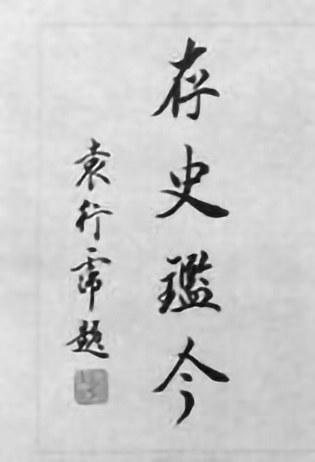 存史鑑今
袁行霈題